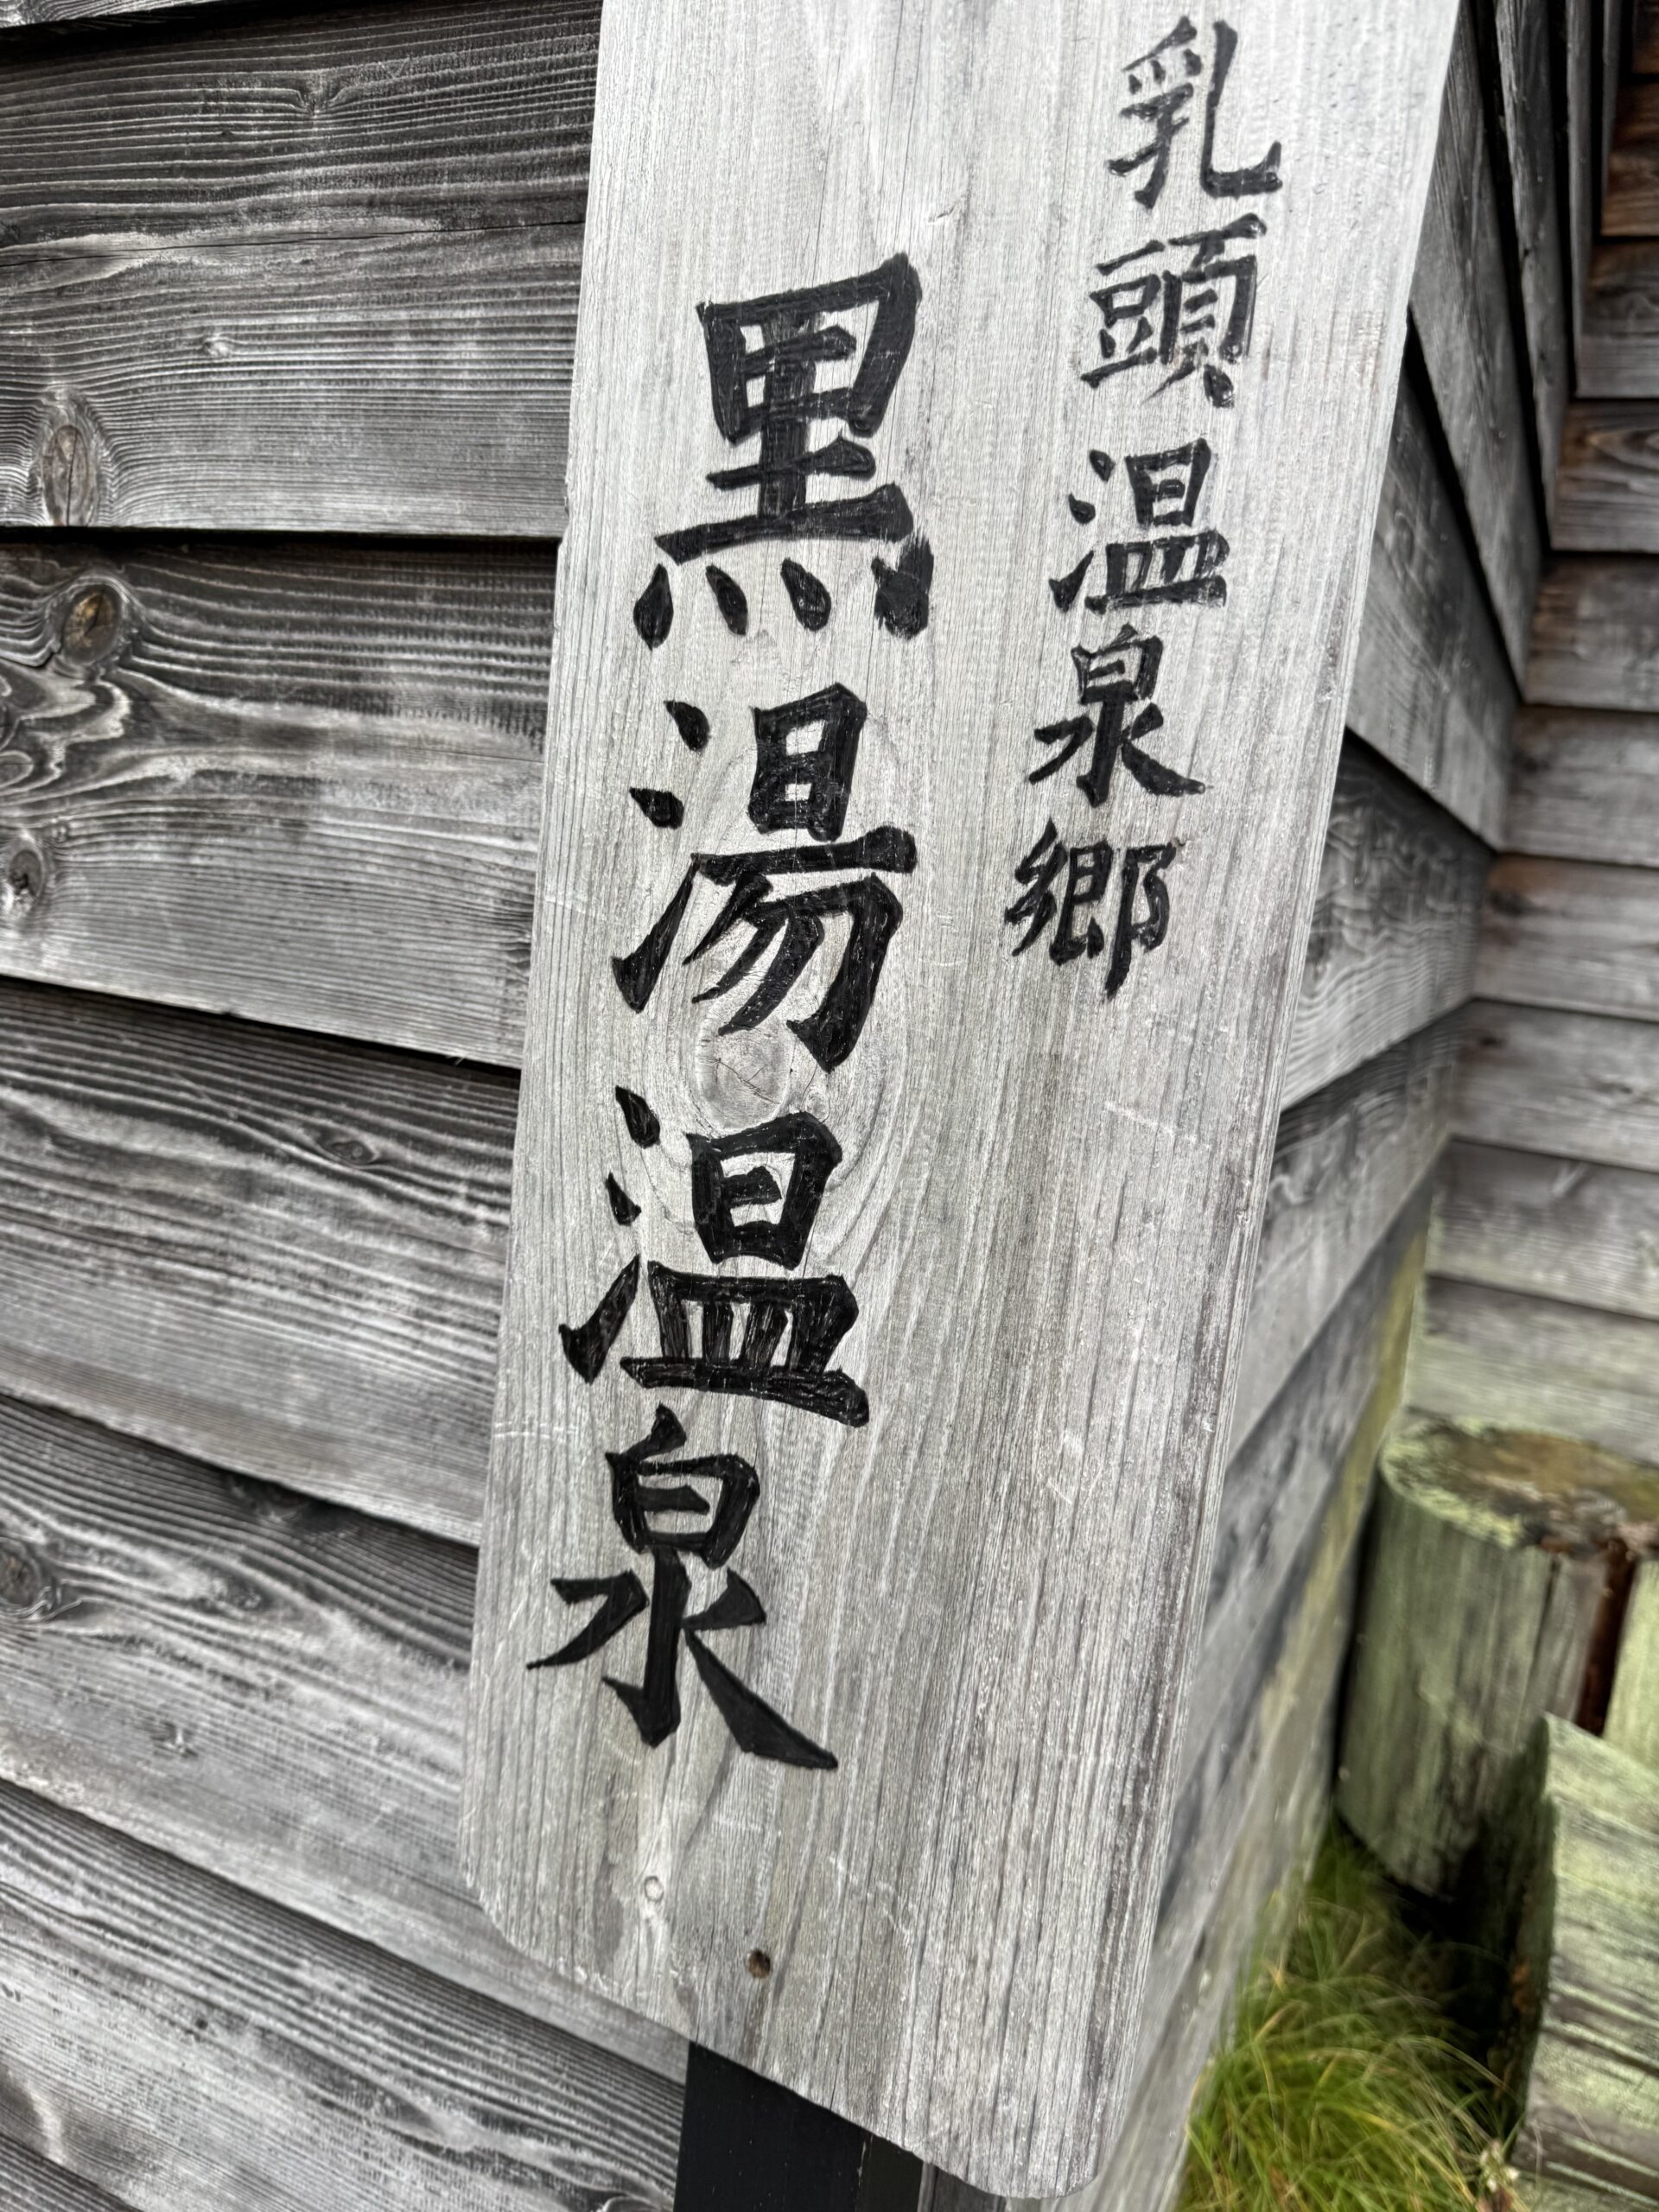 乳頭温泉郷
黒湯温泉